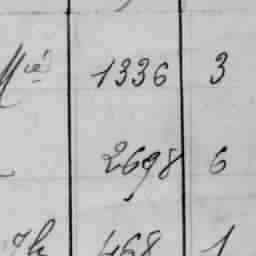 Mié 1336 3
2698 6
468 1